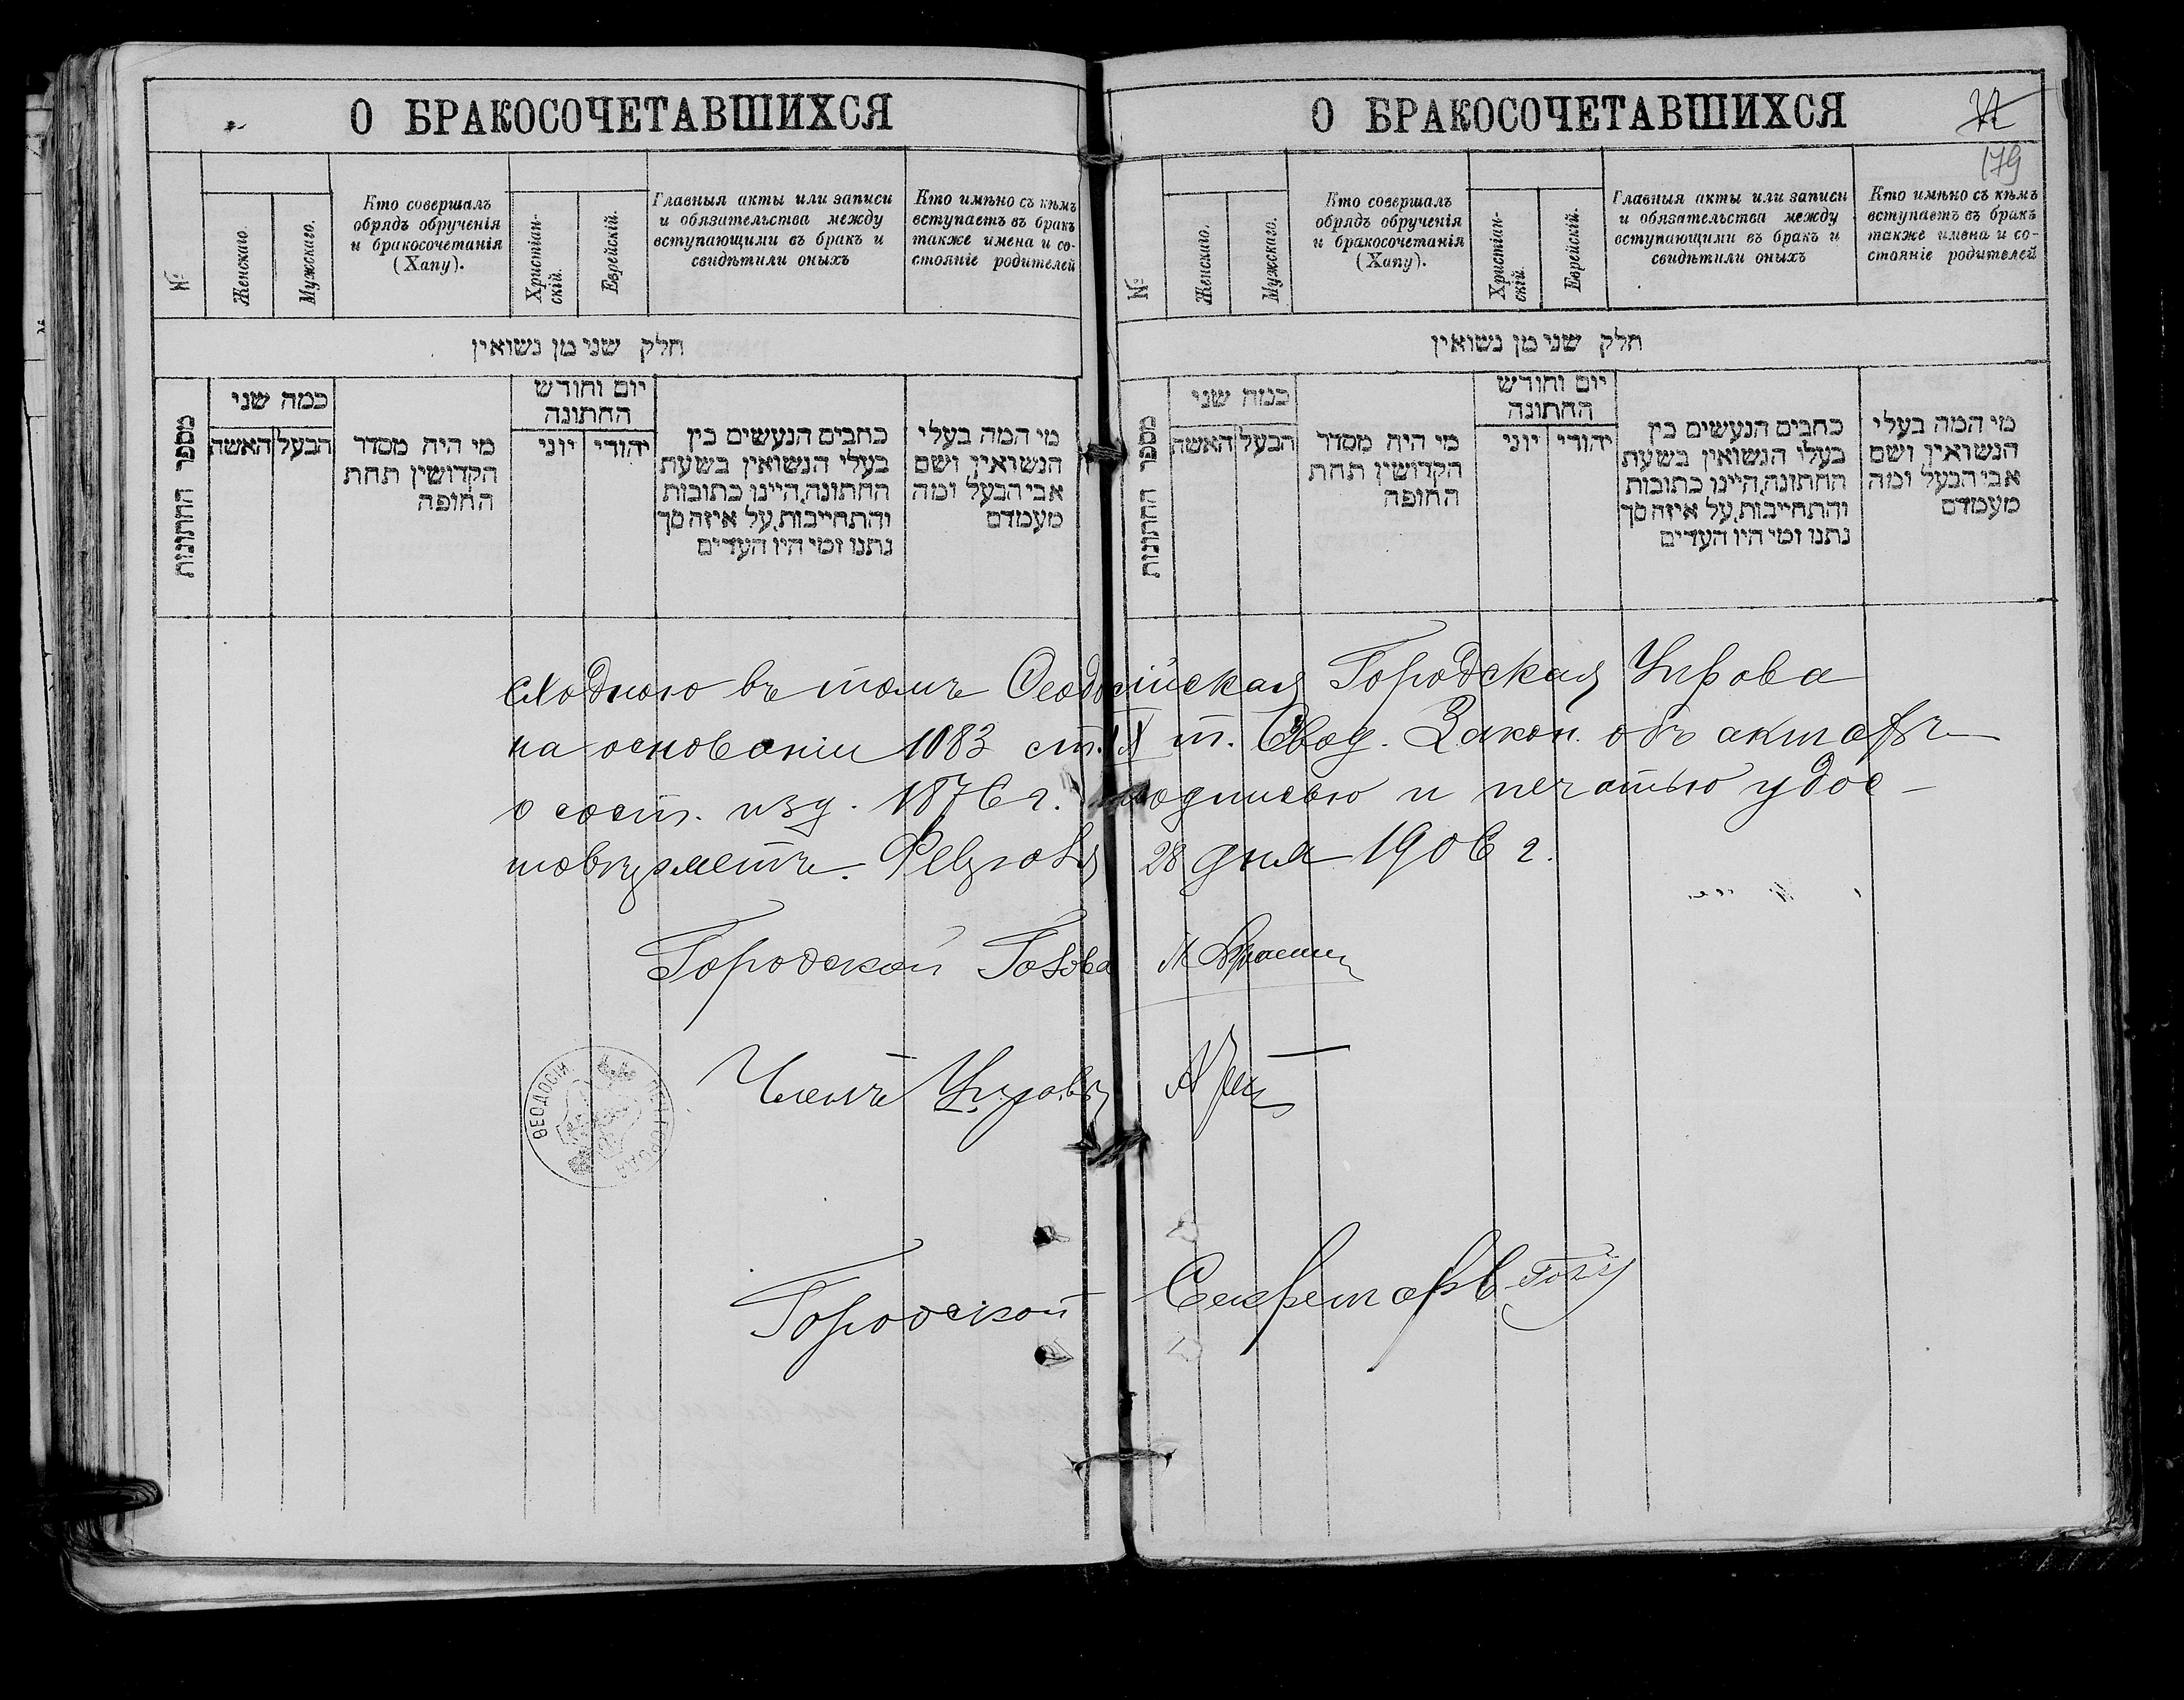 О БРАКОСОЧЕТАВШИХСЯ
№
Женскаго.
Мужскаго.
Кто совершалъ
обрядъ обрученія
и бракосочетанія
(Хапу).
Христіан-
скій.
Еврейскій.
Главныя акты или записи
и обязательства между
вступающими въ бракъ и
свидѣтили оныхъ
Кто имѣно съ кѣмъ
вступаетъ въ бракъ
также имена и со-
стояніе родителей
חלק שני מן נשואין
מספר החתונות
כמה שני
האשה
הבעל
מי היה מסדר
הקדושין תחת
החופה
יום וחודש
החתונה
יוני
יהודי
כחבים הנעשים בין
בעלי הנשואין בשעת
החתונה, היינו כתובות
והתחייבות, על איזה סך
נתנו ומי היו העדים
מי המה בעלי
הנשואין ושם
אבי הבעל ומה
מעמדם
О БРАКОСОЧЕТАВШИХСЯ
179
№
Женскаго.
Мужскаго.
Кто совершалъ
обрядъ обрученія
и бракосочетанія
(Хапу).
Христіан-
скій.
Еврейскій.
Главныя акты или записи
и обязательства между
вступающими въ бракъ и
свидѣтили оныхъ
Кто имѣно съ кѣмъ
вступаетъ въ бракъ
также имена и со-
стояніе родителей
חלק שני מן נשואין
מספר החתונות
כמה שני
האשה
הבעל
מי היה מסדר
הקדושין תחת
החופה
יום וחודש
החתונה
יוני
יהודי
כחבים הנעשים בין
בעלי הנשואין בשעת
החתונה, היינו כתובות
והתחייבות, על איזה סך
נתנו ומי היו העדים
מי המה בעלי
הנשואין ושם
אבי הבעל ומה
מעמדם
въ томъ Ѳеодосійская Городская Управа
на основаніи 1083 ст. IX т. Свод. Закон. объ актахъ
о сост. изд. 1876 г. подписью и печатью удос-
28 дня 1906 г.
Городской Голова
Членъ Управы
ѲЕОДОСІЙ
Городской Секретарь